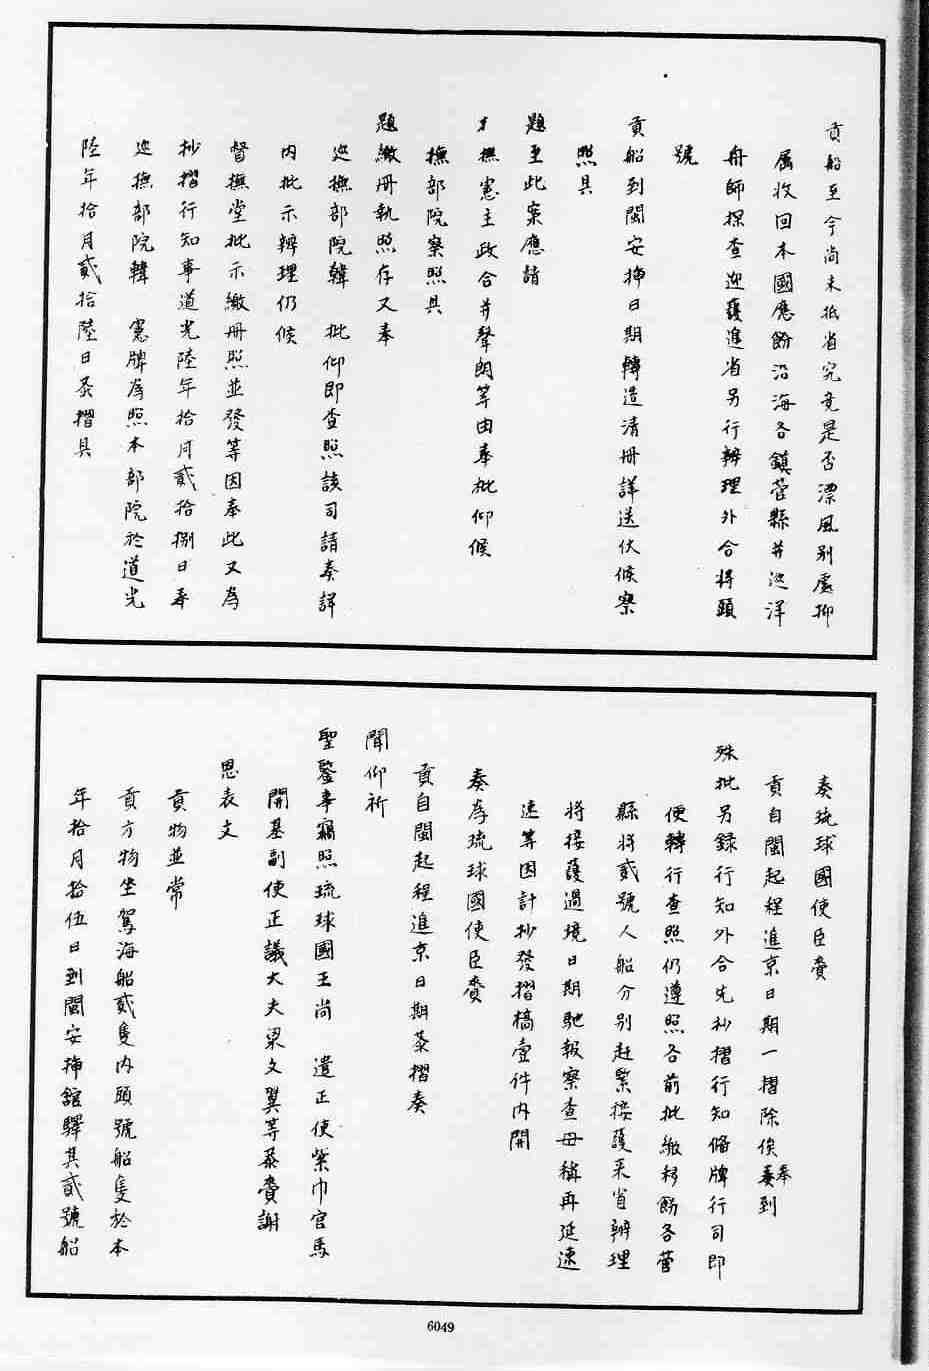 貢船至今尚未抵省究竟是否漂風別處抑
屬收回本國應飭沿海各鎮營縣并巡洋
舟師探查迎護進省另行辦理外合將頭
號
貢船到閩安挿日期轉造清冊詳送伏候察
照具
題至此案應請
撫憲主政合并聲朗等由奉批仰候
撫部院察照具
題繳冊執照存又奉
巡撫部院韓　批仰即查照該司請奏詳
內批示辨理仍候
督撫堂批示繳冊照並發等因奉此又為
抄摺行知事道光陸年拾月貳拾捌日奉
巡撫部院韓　憲牌為照本部院於道光
陸年拾月貳拾陸日恭摺具
奏琉球國使臣賫
貢自閩起程進京日期一摺除俟奉到
殊批另録行知外合先抄摺行知備牌行司即
便轉行查照仍遵照各前批繳移飭各營
縣將貳號人船分別赶緊接護来省辨理
將接護過境日期馳報察查毋稱再延速
速等因計抄發摺稿壹件內開
奏為琉球國使臣賫
貢自閩起程進京日期恭摺奏
聞仰祈
聖鑒事竊照琉球國王尚　遣正使紫巾官馬
開基副使正議大夫梁文翼等恭賫謝
恩表文
貢物並常
貢方物坐駕海船貳隻內頭號船隻於本
年拾月拾伍日到閩安挿舘驛其貳號船
6049